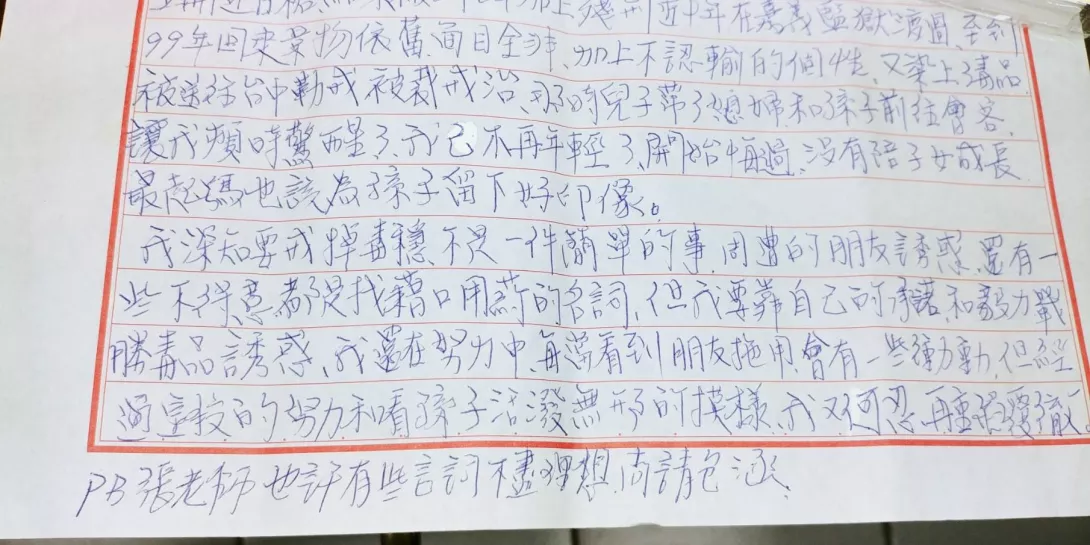 上殘刑近中年在嘉義監獄渡過,至到
99年回來景物依舊面目全非,加上不認輸的個性,又染上毒品
被送往台中勒戒被裁戒治,那時兒子帶了媳婦和孫子前往會客,
讓我頓時驚醒了,我已不再年輕了,開始悔過,沒有陪子女成長
最起碼也該為孫子留下好印像。
我深知要戒掉毒癮不是一件簡單的事,周遭的朋友誘惑,還有一
些不得意都是找藉口用藥的名詞,但我要靠自己的承諾和毅力戰
勝毒品誘惑,我還在努力中,每當看到朋友施用,會有一些衝動,但經
過的努力和看孫子活潑無邪的模樣,我又何忍再重蹈覆轍
PB張老師也許有些言詞不盡理想,尚請包涵,